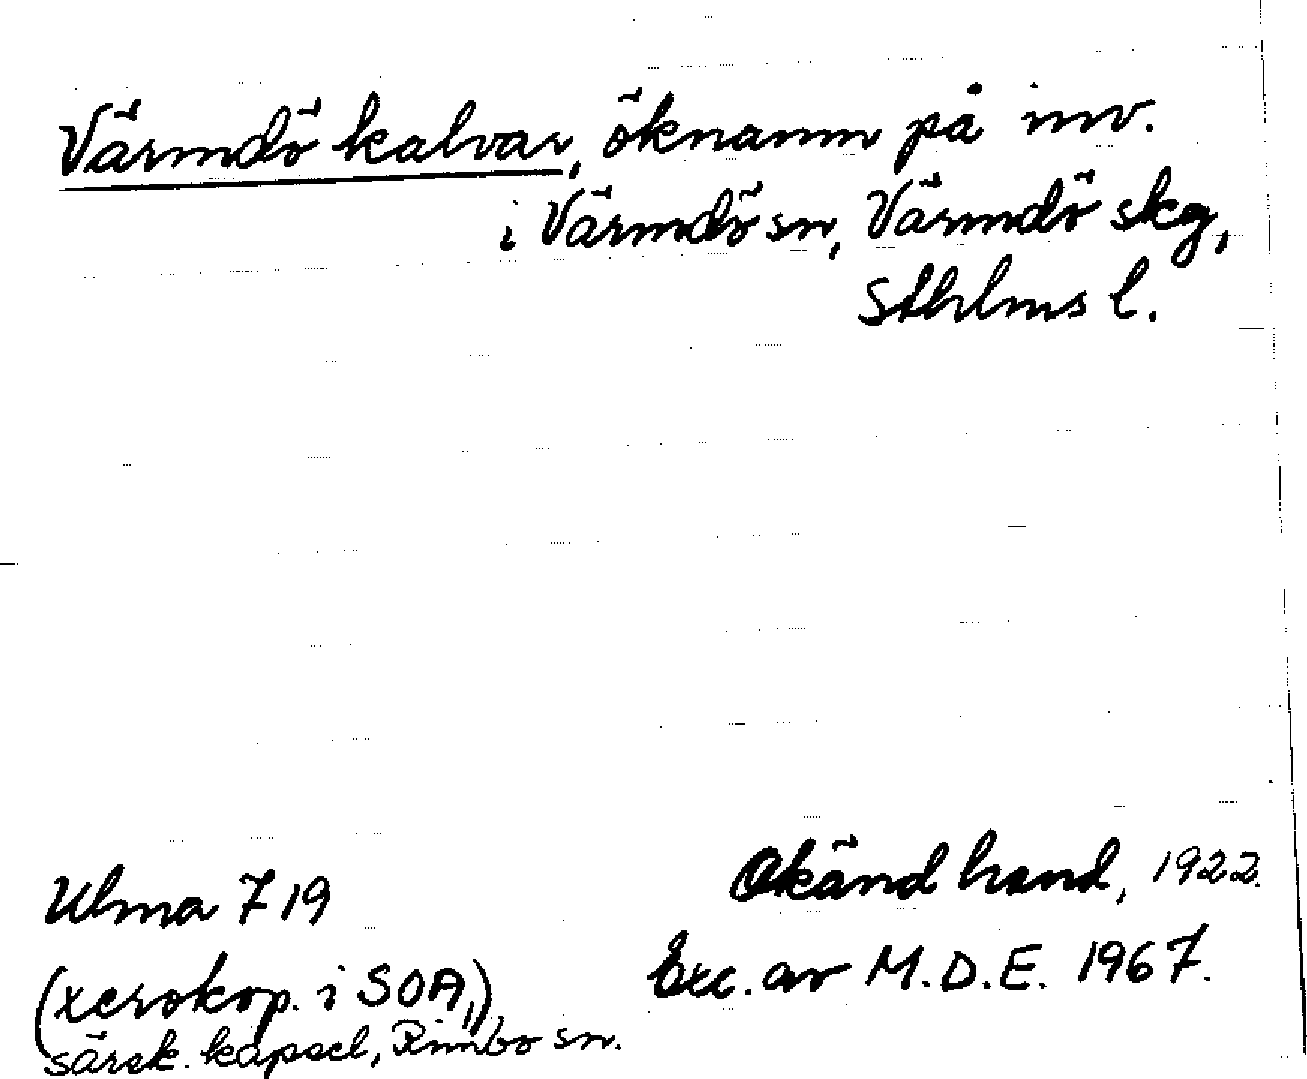 Värmdö kalvar, öknamn på inv.
i Värmdö sn, Värmdö skg,
Sthlms l.
Okänd hand, 1922.
Ulma 719
Exc. av M.D.E. 1967.
(xerokop. i SOA,)
särsk. kapsel, Rimbo sn.